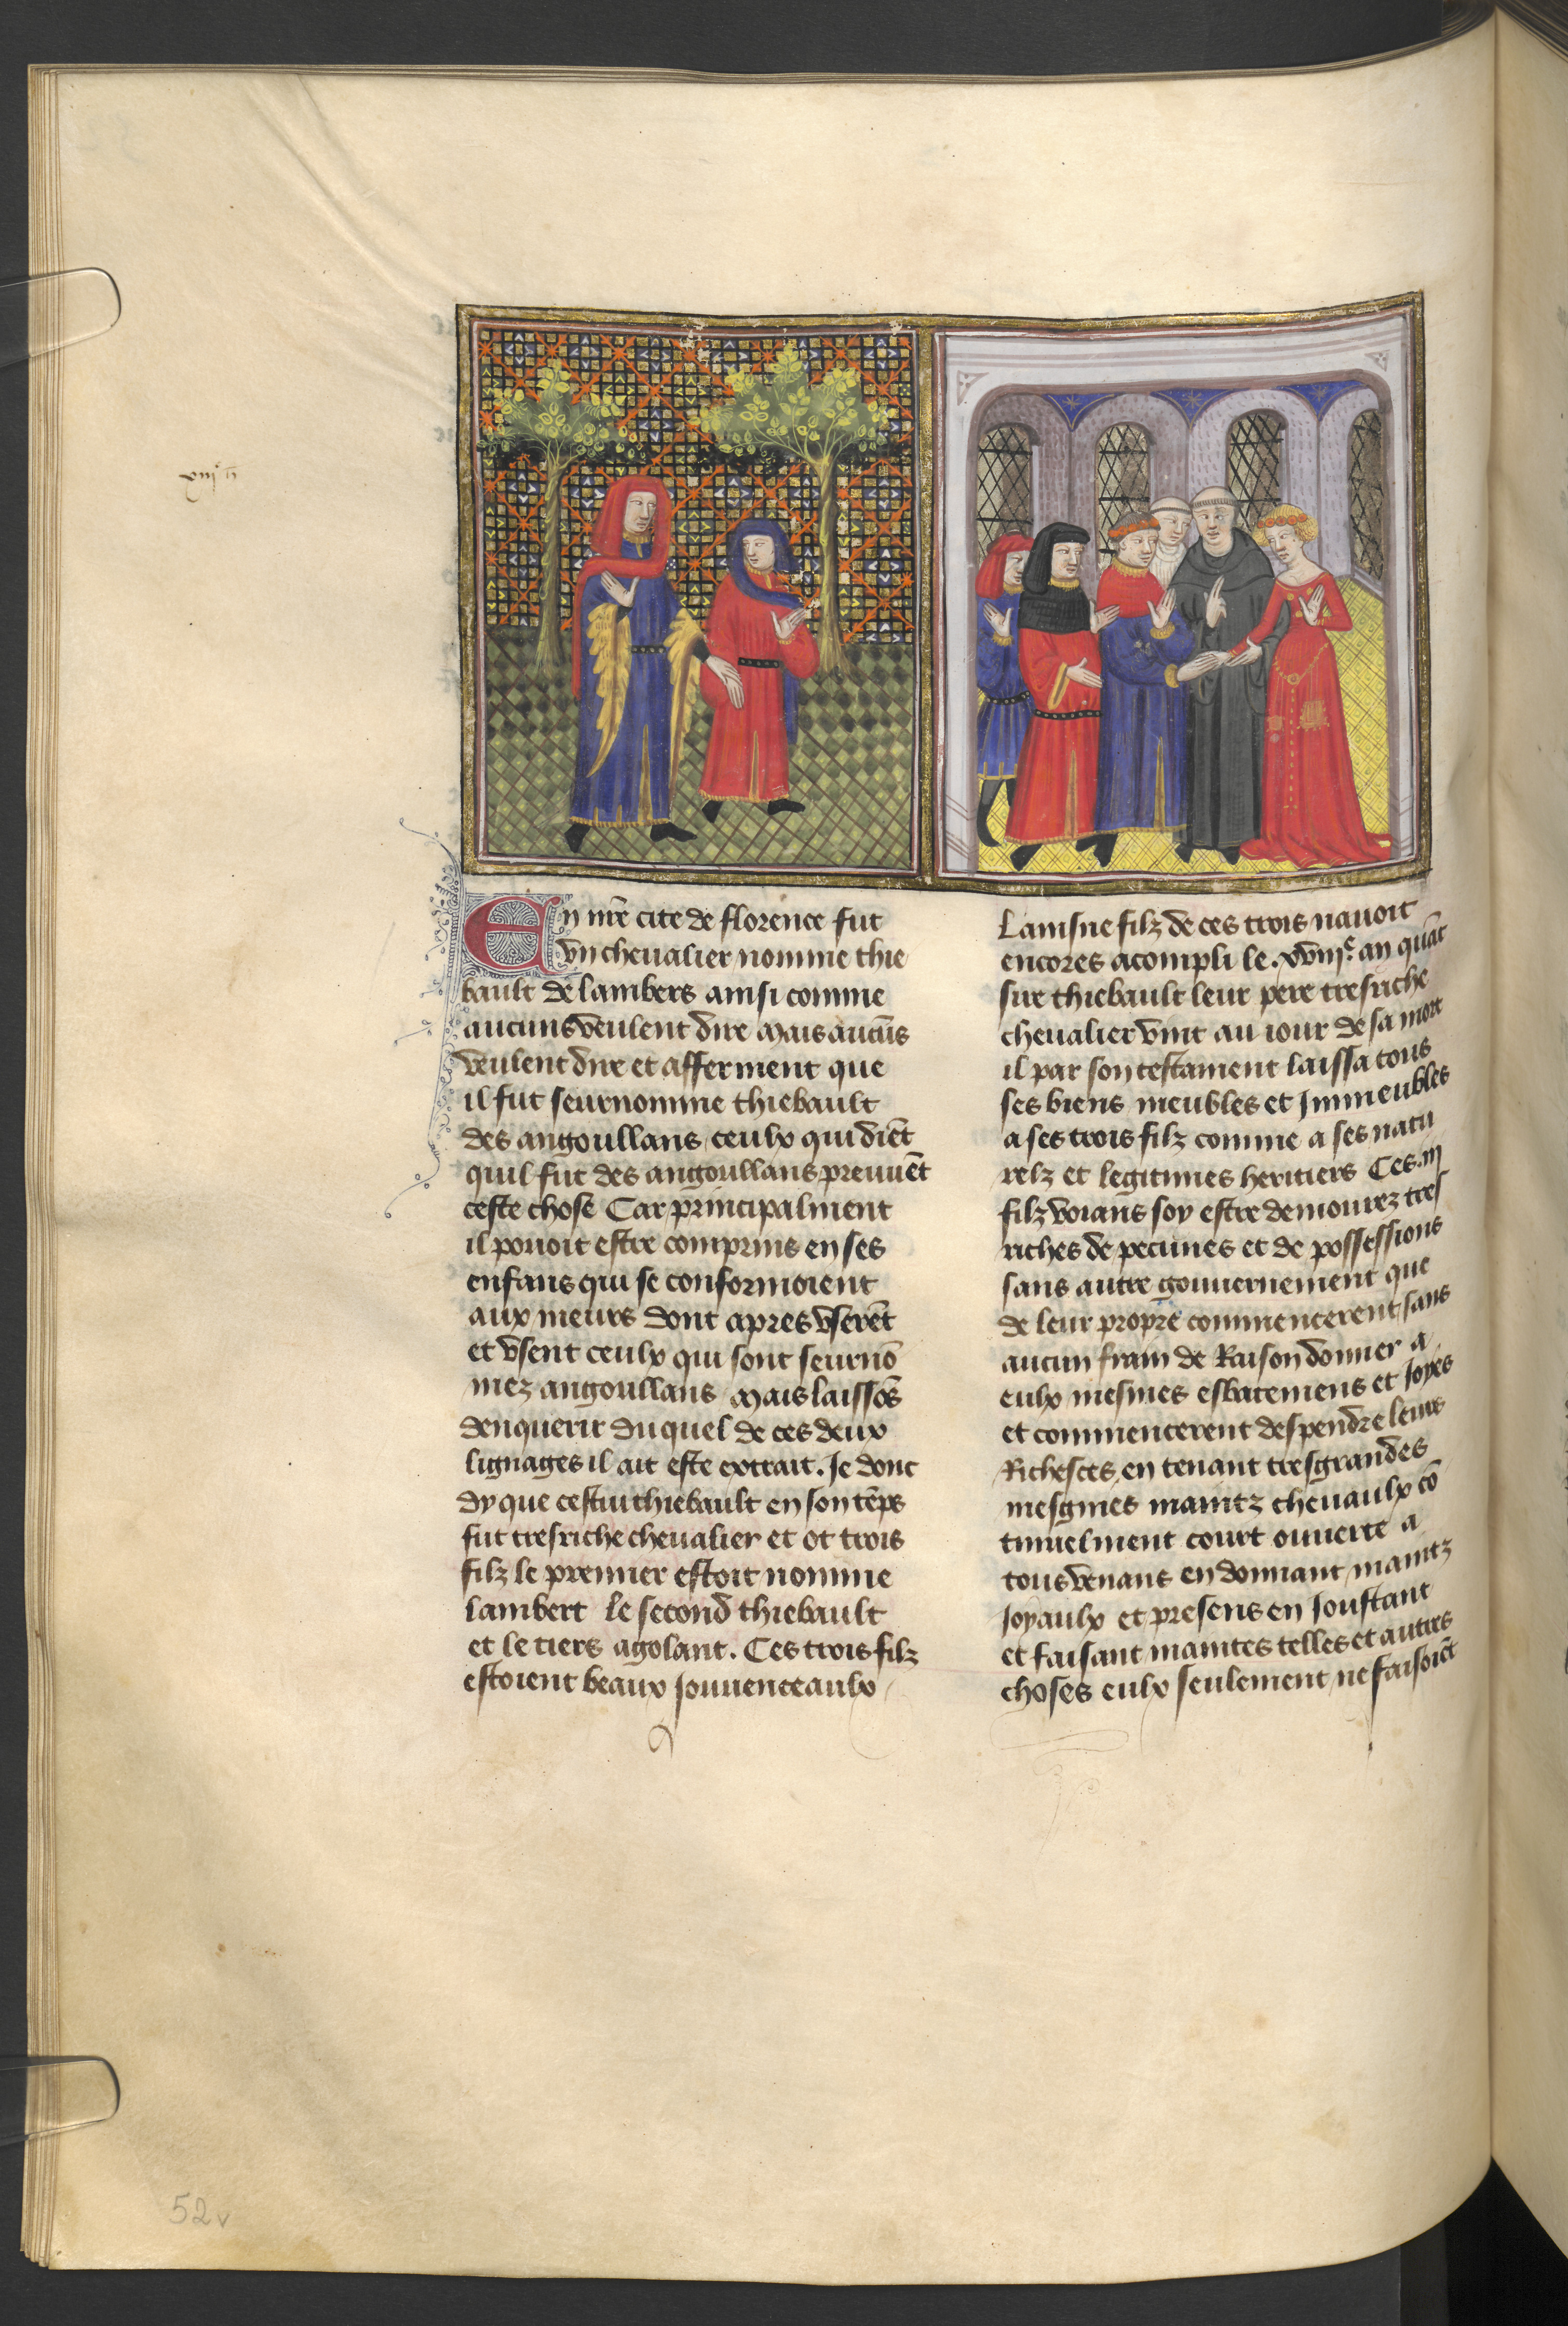 En nr̄e cite de florence fut
vn cheualier nomme thie
bault de lambers ainsi comme
aucuns veulent dire Mais aucūs
veulent dire et afferment que
il fut seurnomme thiebault
des angoullans ceulx qui diēt
quil fut des angoullans preuuēt
ceste chose Car principalment
il pouoit estre comprins en ses
enfans qui se conformoient
aux meurs dont apres vserēt
et vsent ceulx qui sont seurnō
mez angoullans Mais laissōs
denquerir duquel de ces deux
lignages il ait este extrait. Je donc
dy que cestui thiebault en son tēps
fut tresriche cheualier et ot trois
filz le premier estoit nomme
lambert le second thiebault
et le tiers agolant. Ces trois filz
estoient beaux Jouuenceaulx
Lainsne filz de ces trois nauoit
encores acompli le .xviije. an quāt
sire thiebault leur pere tresriche
cheualier vint au iour de sa mort
il par son testament laissa tous
ses biens meubles et Jmmeubles
a ses trois filz comme a ses natu
relz et legitimes heritiers Ces .iij
filz voians soy estre demourez tres
riches de pecunes et de possessions
sans autre gouuernement que
de leur propre commencerent sans
aucun frain de Raison donner a
eulx mesmes esbatemens et Joyes
et commencerent despendre leurs
Richesces en tenant tresgrandes
mesgnies maintz cheuaulx cō
tinuelment court ouuerte a
tous venans en donnant maintz
Joyaulx et presens en Joustant
et faisant maintes telles et autres
choses eulx seulement ne faisoiēt
52v